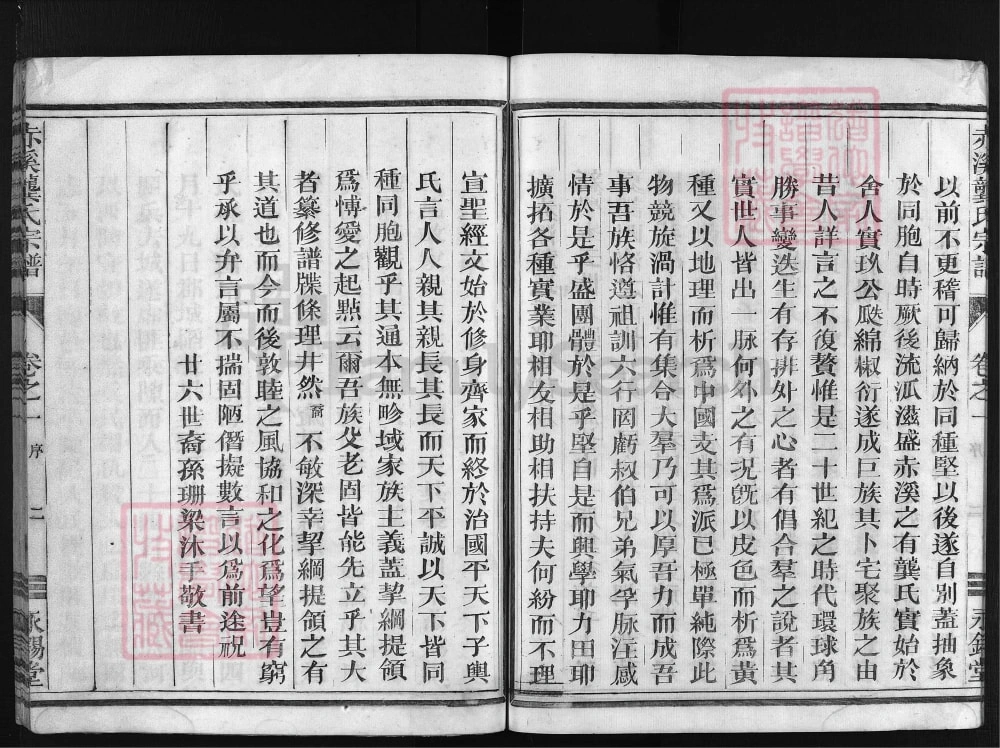 赤溪龔氏宗譜 卷之一 序 二 永錫堂
以前不更稽可歸納於同種堅以後遂自別蓋抽象
於同胞自時厥後流瓜滋盛赤溪之有龔氏實始於
舍人實玖公瓞綿椒衍遂成巨族其卜宅聚族之由
昔人詳言之不復贅惟是二十世紀之時代環球角
勝事變迭生有存排外之心者有倡合羣之說者其
實世人皆出一脉何外之有況旣以皮色而析爲黃
種又以地理而析爲中國支其爲派已極單純際此
物競旋渦計惟有集合大羣乃可以厚吾力而成吾
事吾族恪遵祖訓六行罔虧叔伯兄弟氣孚脉注感
情於是乎盛團體於是乎堅自是而興學耶力田耶
擴拓各種實業耶相友相助相扶持夫何紛而不理
宣聖經文始於修身齊家而終於治國平天下子輿
氏言人人親其親長其長而天下平誠以天下皆同
種同胞觀乎其通本無畛域家族主義蓋挈綱提領
爲愽愛之起點云爾吾族父老固皆能先立乎其大
者纂修譜牒條理井然裔不敏深幸挈綱提領之有
其道也而今而後敦睦之風協和之化爲望豈有窮
乎承以弁言屬不揣固陋僭擬數言以爲前途祝
廿六世裔孫珊梁沐手敬書
赤溪龔氏宗譜 卷之一 序 二 永錫堂